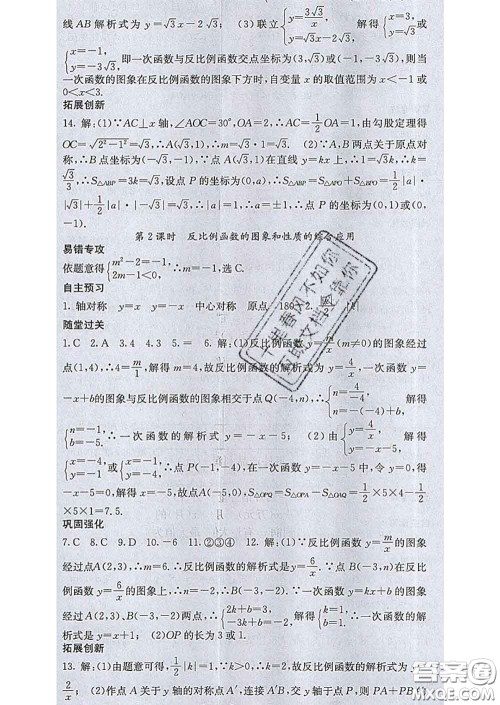 线AB解析式为y=√3x-2√3; (3)联立{y=3√3/x, y=√3x-2√3, 解得{x=3, y=√3或
{x=-1, y=-3√3, 即一次函数与反比例函数交点坐标为(3,√3)或(-1,-3√3),则当
一次函数的图象在反比例函数的图象下方时,自变量x的取值范围为x<-1或
0<x<3.
拓展创新
14. 解:(1)∵AC⊥x轴,∠AOC=30°,OA=2,∴AC=1/2OA=1,由勾股定理得
OC=√(2²-1²)=√3,∴A(√3,1),∴m=√3·1=√3. (2)∵A,B两点关于原点对
称,∴B点坐标为(-√3,-1),∵点A(√3,1)在直线y=kx上,∴√3k=1,∴k=
√3/3,∴S△ABP=3k=√3,设点P的坐标为(0,a),∵S△ABP=S△BPO+S△APO=1/2|a|·
|-√3|+1/2|a|·√3=√3|a|=√3,∴|a|=1,∴a=±1,∴点P的坐标为(0,1)或(0,
-1).
第2课时 反比例函数的图象和性质的综合应用
易错专攻
依题意得{m²-2=-1, 2m-1<0, ∴m=-1,选C.
自主预习
1. 轴对称 y=x y=-x 中心对称 原点 180 2. |k|
随堂过关
1. C 2. A 3. 4 4. 3 5. = 6. 解:(1)反比例函数y=m/x(m≠0)的图象经过
点(1,4),∴4=m/1,解得m=4,故反比例函数的解析式为y=4/x,一次函数y=
-x+b的图象与反比例函数的图象相交于点Q(-4,n),∴{n=4/-4, n=-(-4)+b, 解得
{n=-1, b=-5. ∴一次函数的解析式y=-x-5; (2)由{y=4/x, y=-x-5, 解得
{x=-4, y=-1或{x=-1, y=-4, ∴点P(-1,-4),在一次函数y=-x-5中,令y=0,得
-x-5=0,解得x=-5,故点A(-5,0),S△OPQ=S△OPA-S△OAQ=1/2×5×4-1/2
×5×1=7.5.
巩固强化
7. C 8. C 9. D 10. -6 11. ②③④ 12. 解:(1)∵反比例函数y=m/x的图象
经过点A(2,3),∴m=6.∴反比例函数的解析式是y=6/x,∵点B(-3,n)在反比
例函数y=6/x的图象上,∴n=-2,∴B(-3,-2),∵一次函数y=kx+b的图象
经过A(2,3)、B(-3,-2)两点,∴{2k+b=3, -3k+b=-2, 解得{k=1, b=1. ∴一次函数的解
析式是y=x+1; (2)OP的长为3或1.
拓展创新
13. 解:(1)由题意可得,1/2|k|=1,∵k>0,∴k=2,故反比例函数的解析式为y=
2/x; (2)作点A关于y轴的对称点A′,连接A′B,交y轴于点P,则PA+PB
千里春风不如你
互联文档更懂你
答案圈
MXQE.COM